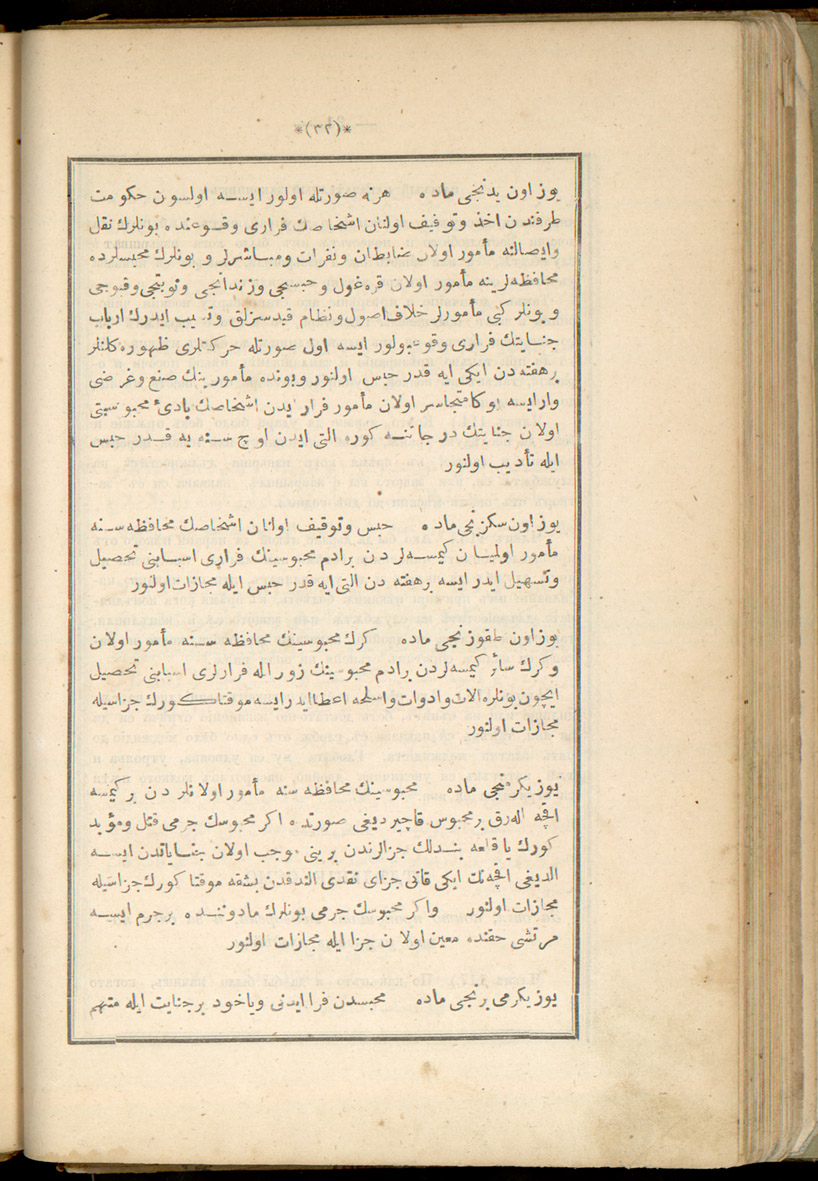 *(٣٢)*
يوز اون يدنجى ماده هرنه صورتله اولور ايسه اولسون حكومت
طرفندن اخذ وتوقيف اولنان اشخاصك فرارى وقوعنده بونلرك نقل
وايصالنه مأمور اولان ضابطان ونفرات ومباشرلر و بونلرك محبسلرده
محافظه لرينه مأمور اولان قره غول وحبسجى وزندانجى ونوبتجى وقبوجى
وبونلر كبى مأمورلر خلاف اصول ونظام قيدسزلق وتسيب ايدرك ارباب
جنايتك فرارى وقوعبولور ايسه اول صورتله حركتلرى ظهوره كلنلر
برهفته دن ايكى ايه قدر حبس اولنور وبونده مأمورينك صنع وغرضى
وارايسه بوكا متجاسر اولان مأمور فرار ايدن اشخاصك بادئ محبوسيتى
اولان جنايتك درجاتنه كوره التى ايدن اوچ سنه يه قدر حبس
ايله تأديب اولنور
يوز اون سكزنجى ماده حبس وتوقيف اولنان اشخاصك محافظه سنه
مأمور اولميان كيمسه لردن برادم محبوسينك فرارى اسبابنى تحصيل
وتسهيل ايدر ايسه برهفته دن التى ايه قدر حبس ايله مجازات اولنور
يوز اون طقوزنجى ماده كرك محبوسينك محافظه سنه مأمور اولان
وكرك سائر كيمسه لردن برادم محبوسينك زور ايله فرارلرى اسبابنى تحصيل
ايچون بونلره الات وادوات واسلحه اعطا ايدر ايسه موقتا كورك جزاسيله
مجازات اولنور
يوز يكرمنجى ماده محبوسينك محافظه سنه مأمور اولانلردن بر كيمسه
اقچه اله رق بر محبوس قاچيرديغى صورتده اكر محبوسك جرمى قتل ومؤبد
كورك يا قلعه بندلك جزالرندن برينى موجب اولان جناياتدن ايسه
الديغى اقچه نك ايكى قاتى جزاى نقدى الندقدن بشقه موقتا كورك جزاسيله
مجازات اولنور واكر محبوسك جرمى بونلرك مادوننده برجرم ايسه
مرتشى حقنده معين اولان جزا ايله مجازات اولنور
يوز يكرمى برنجى ماده محبسدن فرا ايدنى وياخود برجنايت ايله متهم